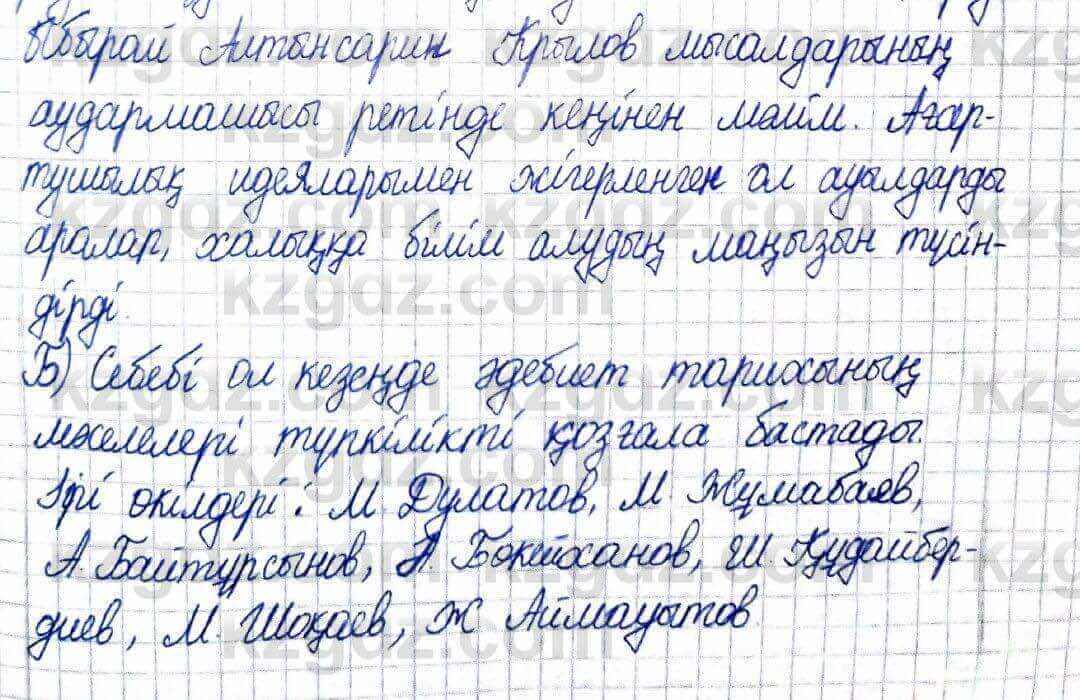 Ыбырай Алтынсарин Крылов мысалдарының
аудармашысы ретінде кеңінен мәлім. Ағар-
тушылық идеяларымен жігерленген ол ауылдарды
аралап, халыққа білім алудың маңызын түсін-
дірді.
Б) Себебі ол кезеңде әдебиет тарихының
мәселелері түпкілікті қозғала бастады.
Ірі өкілдері: М. Дулатов, М. Жұмабаев,
А. Байтұрсынов, Ә. Бөкейханов, Ш. Құдайбер-
диев, М. Шоқаев, Ж Аймауытов
kzgdz.com